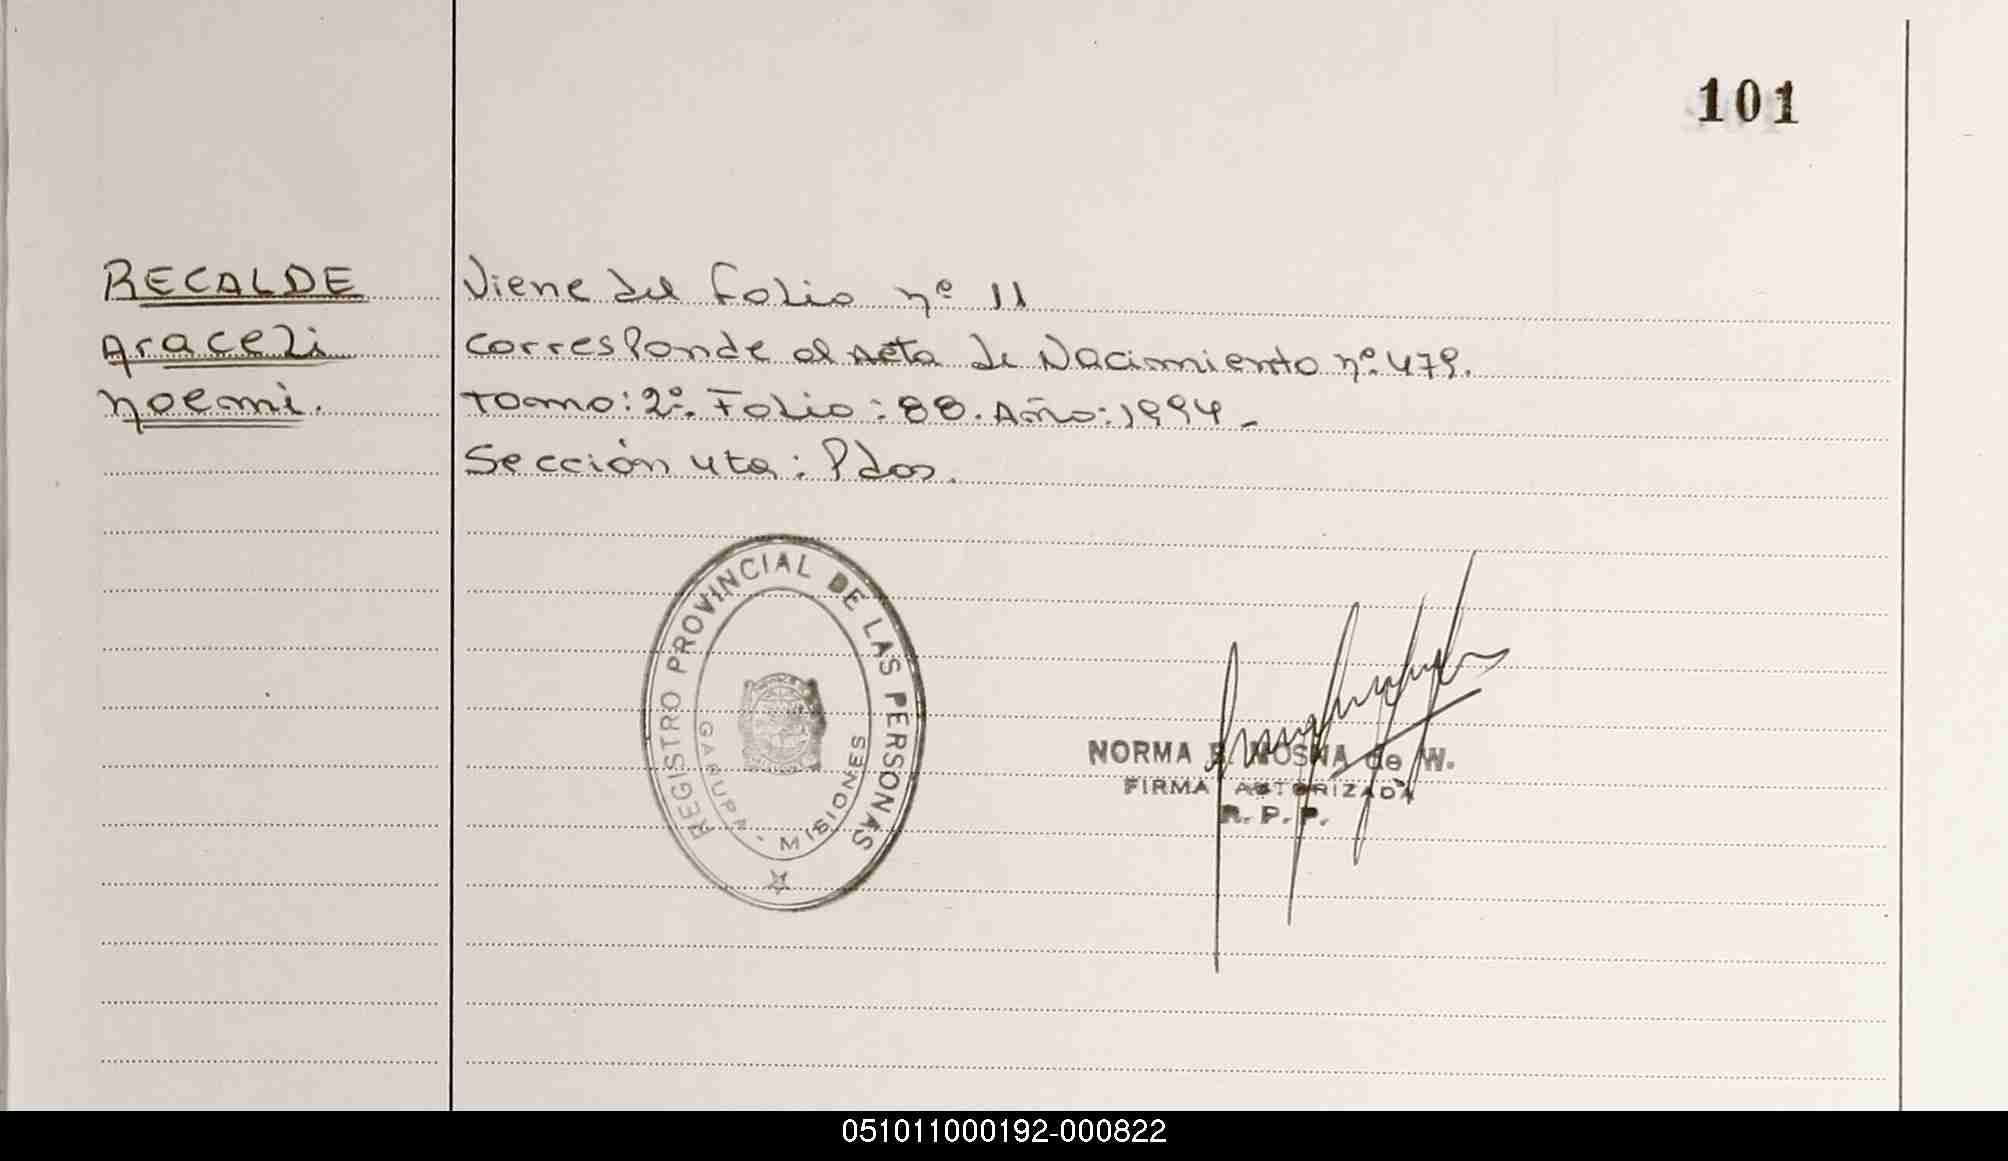 101
RECALDE
Araceli
Noemi.
Viene del Folio nº 11
corresponde al Acta de Nacimiento nº 479.
Tomo: 2º. Folio: 88. Año: 1994 -
Sección 4ta: Pdas.
REGISTRO PROVINCIAL DE LAS PERSONAS
GARUPA - MISIONES
NORMA E. MOSNA de W.
FIRMA AUTORIZADA
R. P. P.
051011000192-000822